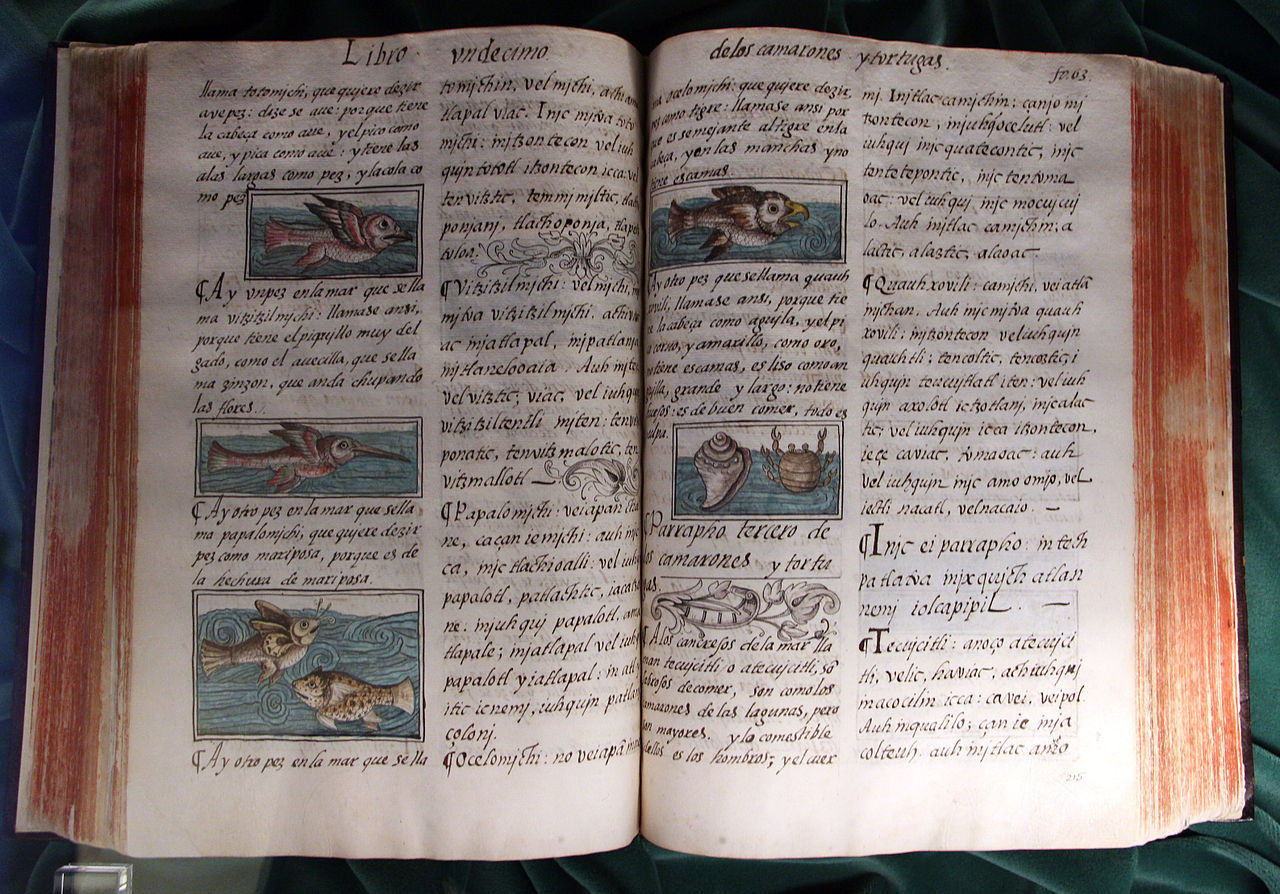 Libro undecimo
llama totomichi, que quiere dezir
ave pez: dize se ave: porque tiene
la cabeça como ave, y el pico como
ave, y pica como ave: y tiene las
alas largas como pez, y la cola co
mo pez
¶Ay un pez en la mar que se lla
ma vitzitzilmichi: llamase ansi,
porque tiene el piquillo muy del
gado, como el avecilla, que se lla
ma zinzon, que anda chupando
las flores.
¶Ay otro pez en la mar que se lla
ma papalomichi, que quiere dezir
pez como mariposa, porque es de
la hechura de mariposa.
¶Ay otro pez en la mar que se lla
tomichin, vel michi,
tlapal viac. Injc mitva toto
michi: injtzontecon vel iuh
quin tototl itzontecon icca: vel
tenvitztic, temmimiltic,
ponjani, tlachoponja,
toloa.
¶Vitzitzilmichi: vel michi,
mjtva vitzitzilmichi.
ac injatlapal, injpatlanja
injtlanelooaia. Auh injte
vel vitztic, viac, vel iuhqu
vitzitziltentli injten:
ponatic, tenvitzmalotic, ten
vitzmallotl
¶Papalomichi: vei apan
ne, çaçan ie michi: auh
ca, injc tlachioalli: vel iuh
papalotl, patlachtic,
ne: injuhquj papalotl,
tlapale; injatlapal vel iuh
papalotl yiatlapal: in atl
itic ie nemj, iuhqujn patlan
çolonj.
¶Ocelomichi: no vei apan
de los camarones y tortugas. fo. 63.
ma ocelomichi: que quiere dezir,
pez como tigre: llamase ansi por
que es semejante al tigre en la
cabeça, y en las manchas y no
tiene escamas.
¶Ay otro pez que se llama quauh
xovili, llamase ansi, porque tie
ne la cabeça como aguila, y el pi
co corvo, y amarillo, como oro,
no tiene escamas, es liso como an
guilla, grande y largo: no tiene
huesos: es de buen comer, todo es
pulpa.
¶Parrapho tercero de
los camarones y tortu
gas.
¶A los cangrejos de la mar lla
man tecujcitli o atecujcitli, so
de comer, son como los
camarones de las lagunas, pero
son mayores. y lo comestible
dellos es los hombros; y el cuer
mj. Injtlac camjchin: canjo mj
tzontecon, injuhqujoçelutl: vel
iuhquj injc quatecontic, injc
tentetepontic, injc tentvma
oac: vel iuhquj injc mocujcuj
lo. Auh injtlac camjchin, a
lactic, alaztic, alaoac.
¶Quauhxovili: camjchi, vei atla
mjchan. Auh injc mjtva quauh
xovili: injtzontecon vel iuhqujn
quauhtli: tencoltic, tencoztic, i
uhqujn teucujtlatl iten: vel iuh
qujn axolotl ic tzotlanj, injc alac
tic, vel iuhqujn icca itzontecon,
ieçe caviac, tvmaoac: auh
vel iuhqujn injc amo omjo, vel
ieltli nacatl, vel nacaio.
¶Injc ei parrapho: intech
patlatva injxqujch atlan
nenj iolcapipil.
¶Tecujcitli: anoço atecujci
tli, velic, haviac, achiiuhquj
in acocilin icca: ca vei, veipol.
Auh in qualilo; çan ie inja
colteuh. auh injtlac anço
215